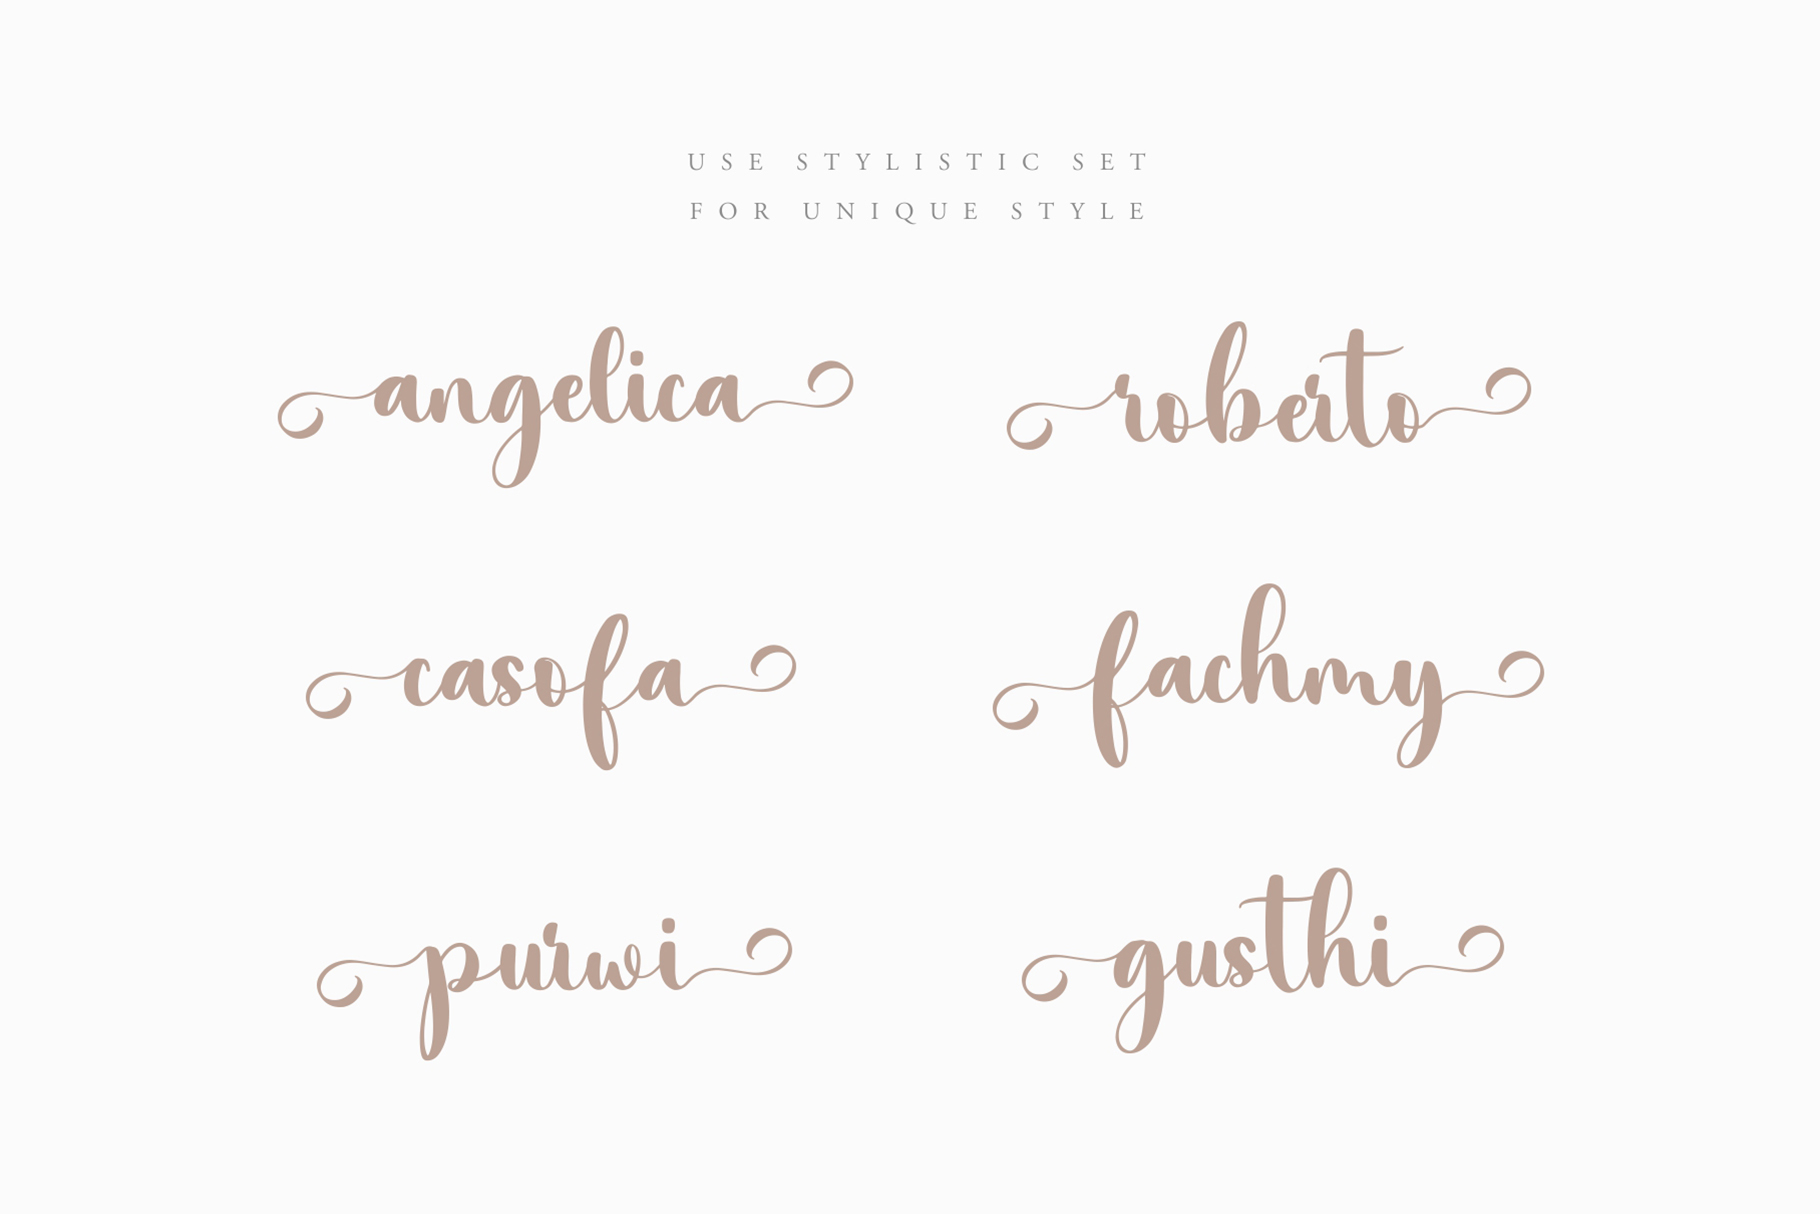 USE STYLISTIC SET
FOR UNIQUE STYLE
angelica roberto
casofa fachmy
purwi gusthi